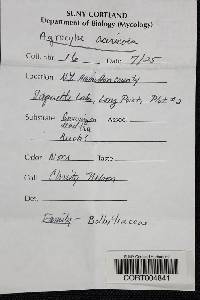 SUNY CORTLAND
Department of Biology (Mycology)
Agrocybe
Coll. nr. 16 Date 7/25
Location NY, Hamilton County
Raquette Lake, Long Point, Plot #2
Substrate Assoc.
Odor None Taste
Coll. Christy Nelson
Det.
Family - Bolbitiaceae
CORT004841